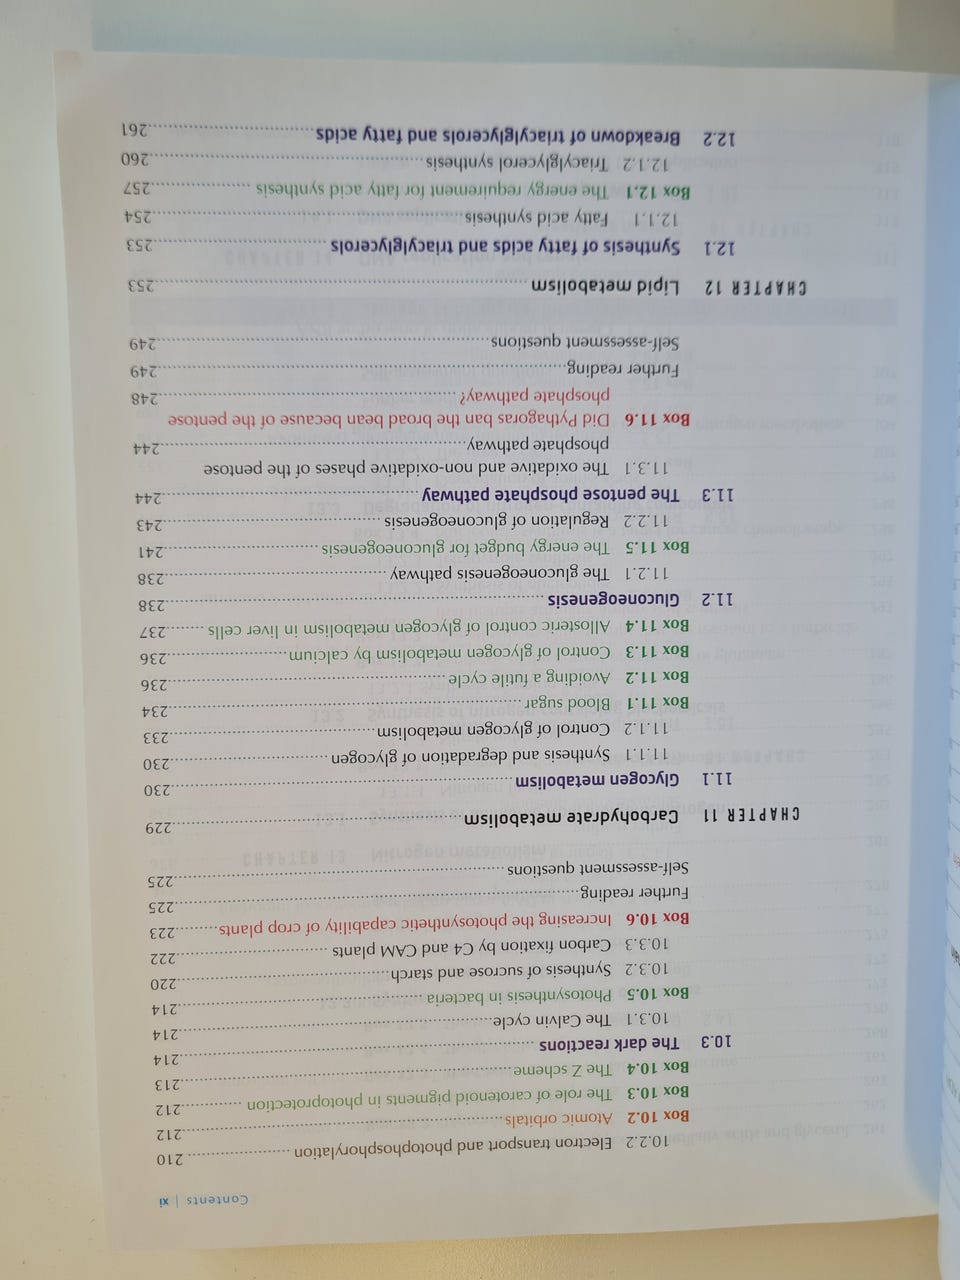 Contents | xi
10.2.2 Electron transport and photophosphorylation ..................... 210
Box 10.2 Atomic orbitals ..................... 212
Box 10.3 The role of carotenoid pigments in photoprotection ............ 212
Box 10.4 The Z scheme ..................... 213
10.3 The dark reactions ..................... 214
10.3.1 The Calvin cycle ..................... 214
Box 10.5 Photosynthesis in bacteria ..................... 214
10.3.2 Synthesis of sucrose and starch ..................... 220
10.3.3 Carbon fixation by C4 and CAM plants ..................... 222
Box 10.6 Increasing the photosynthetic capability of crop plants ......... 223
Further reading ..................... 225
Self-assessment questions ..................... 225
CHAPTER 11 Carbohydrate metabolism ..................... 229
11.1 Glycogen metabolism ..................... 230
11.1.1 Synthesis and degradation of glycogen ..................... 230
11.1.2 Control of glycogen metabolism ..................... 233
Box 11.1 Blood sugar ..................... 234
Box 11.2 Avoiding a futile cycle ..................... 236
Box 11.3 Control of glycogen metabolism by calcium ..................... 236
Box 11.4 Allosteric control of glycogen metabolism in liver cells ......... 237
11.2 Gluconeogenesis ..................... 238
11.2.1 The gluconeogenesis pathway ..................... 238
Box 11.5 The energy budget for gluconeogenesis ..................... 241
11.2.2 Regulation of gluconeogenesis ..................... 243
11.3 The pentose phosphate pathway ..................... 244
11.3.1 The oxidative and non-oxidative phases of the pentose
phosphate pathway ..................... 244
Box 11.6 Did Pythagoras ban the broad bean because of the pentose
phosphate pathway? ..................... 248
Further reading ..................... 249
Self-assessment questions ..................... 249
CHAPTER 12 Lipid metabolism ..................... 253
12.1 Synthesis of fatty acids and triacylglycerols ..................... 253
12.1.1 Fatty acid synthesis ..................... 254
Box 12.1 The energy requirement for fatty acid synthesis ............... 257
12.1.2 Triacylglycerol synthesis ..................... 260
12.2 Breakdown of triacylglycerols and fatty acids ..................... 261